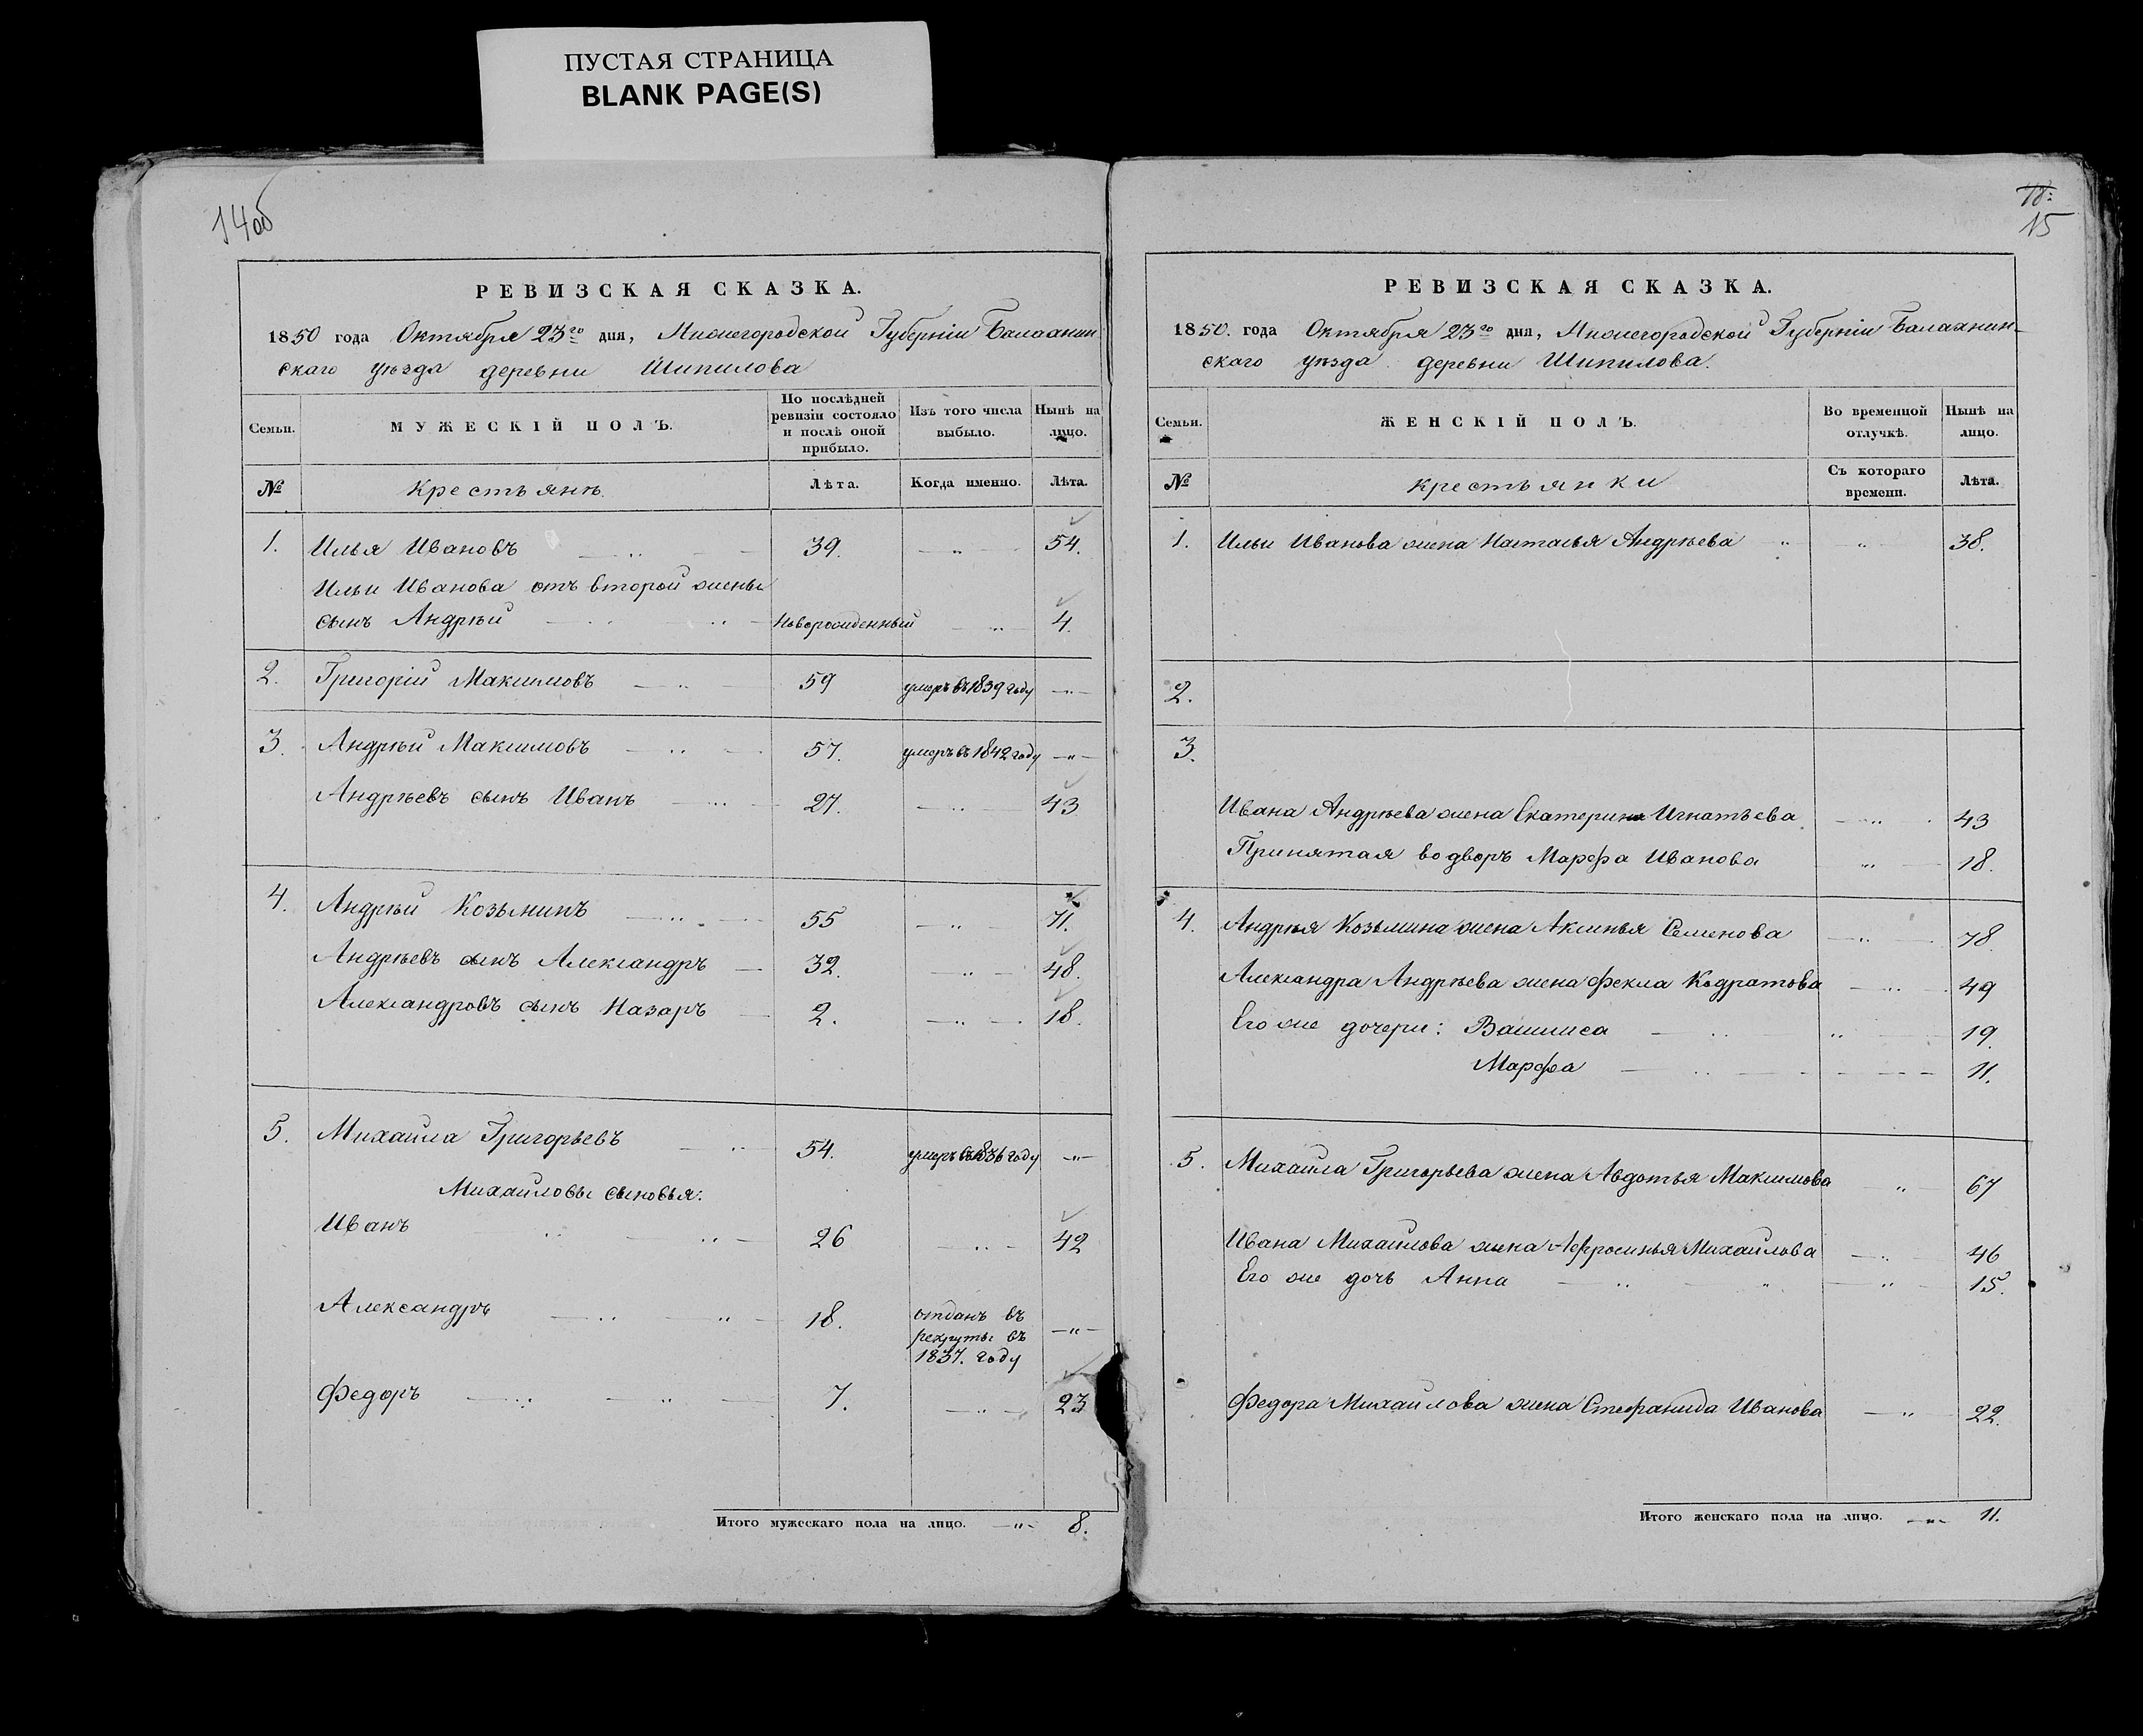 ПУСТАЯ СТРАНИЦА
BLANK PAGE(S)
14об
РЕВИЗСКАЯ СКАЗКА.
1850 года Октября 23го дня, Нижегородской Губерніи Балахнин
скаго уѣзда деревни Шипилова
Семьи.
МУЖЕСКІЙ ПОЛЪ.
По послѣдней ревизіи состояло и послѣ оной прибыло.
Изъ того числа выбыло.
Нынѣ на лицо.
№ Крестьянѣ. Лѣта. Когда именно. Лѣта.
1. Илья Ивановъ 39. 54.
Ильи Иванова отъ второй жены
сынъ Андрѣй Новорожденный 4.
2. Григорій Максимовъ 59 умеръ въ 1839 году
3. Андрѣй Максимовъ 57. умеръ въ 1842 году
Андрѣевъ сынъ Иванъ 27. 43
4. Андрѣй Козьминъ 55 71.
Андрѣевъ сынъ Александръ 32. 48.
Александровъ сынъ Назаръ 2. 18.
5. Михаила Григорьевъ 54. умеръ въ 1836 году
Михайловы сыновья:
Иванъ 26 42
Александръ 18. отданъ въ
рекруты въ
1837. году
Федоръ 7. 23
Итого мужескаго пола на лицо. 8.
18:
15
РЕВИЗСКАЯ СКАЗКА.
1850. года Октября 23го дня, Нижегородской Губерніи Балахнин-
скаго уѣзда деревни Шипилова.
Семьи.
ЖЕНСКІЙ ПОЛЪ.
Во временной отлучкѣ.
Нынѣ на лицо.
№ Крестьянки Съ котораго времени. Лѣта.
1. Ильи Иванова жена Настасья Андрѣева 38.
2.
3.
Ивана Андрѣева жена Екатерина Игнатьева 43
Принятая во дворъ Марфа Иванова 18.
4. Андрѣя Козьмина жена Аксинья Семенова 78
Александра Андрѣева жена Фекла Кодратова 49
Его же дочери: Васлиса 19.
Марфа 11.
5. Михаила Григорьева жена Авдотья Максимова 67
Ивана Михайлова жена Афросинья Михайлова 46
Его же дочь Анна 15.
Федора Михайлова жена Стефанида Иванова 22.
Итого женскаго пола на лицо. 11.